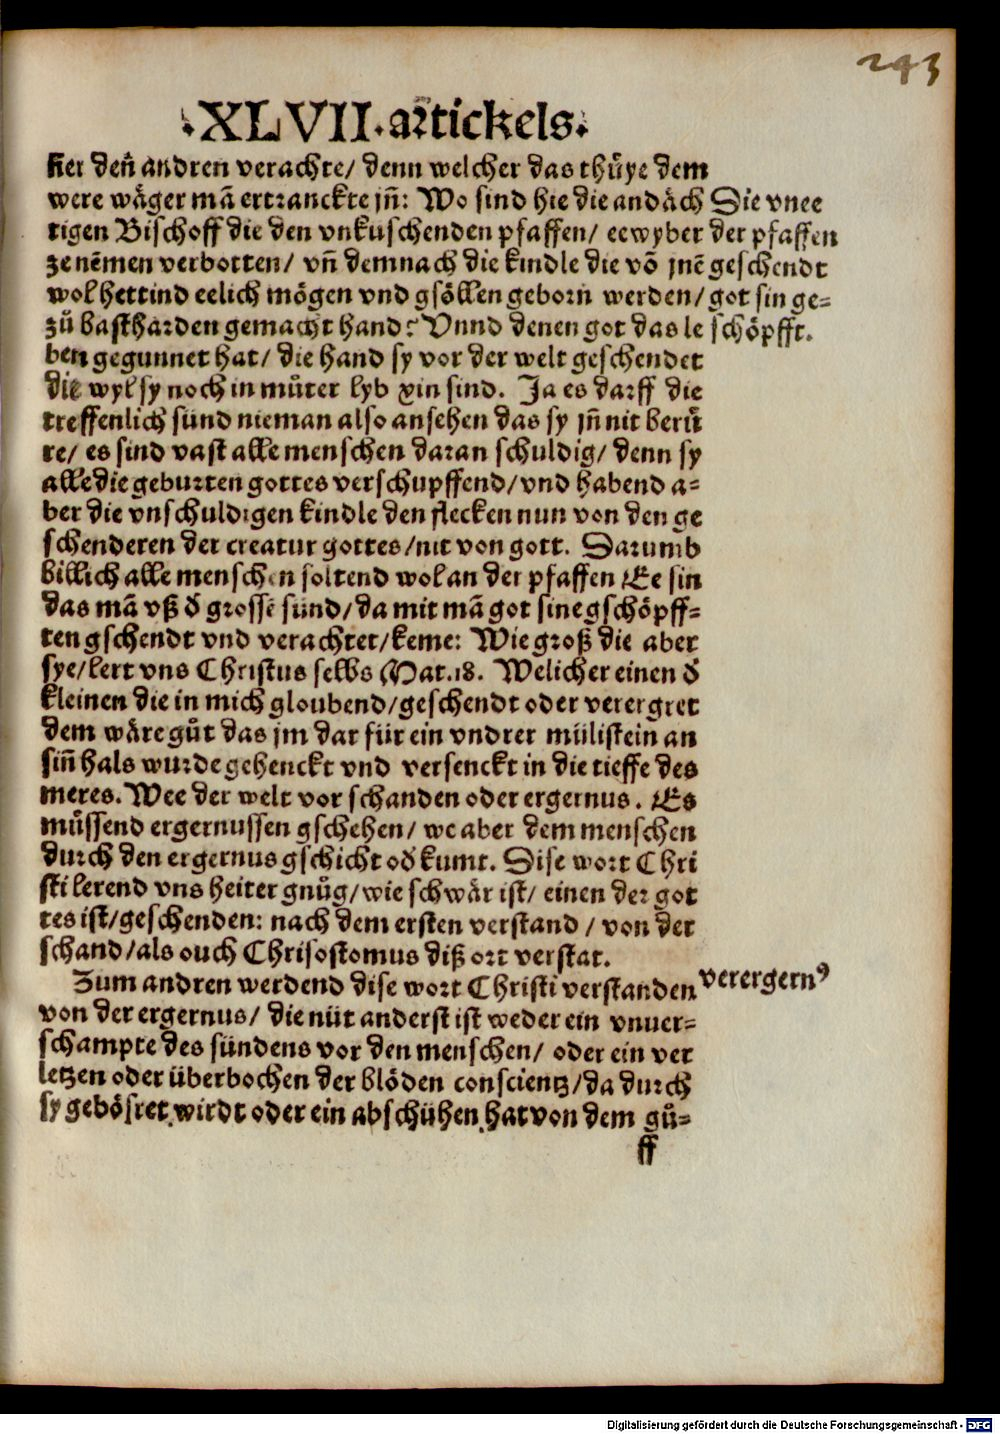 243
·XLVII·artickels·
ner deñ andren verachte/ denn welcher das thuͤye dem
were waͤger mā ertranckte jñ: Wo sind hie die andaͤch
tigen Bischoff die den vnkuschenden pfaffen/ eewyber
ze nēmen verbotten/ vñ demnach die kindle die vō jnē
wol hettind eelich moͤgen vnd gsoͤllen geborn werden/
zuͦ basthardengemacht hand? Vnnd denen got das le
ben gegunnet hat/ die hand sy vor der welt geschendet
die wyl sy noch in muͦter lyb xin sind. Ja es darff die
treffenlich sünd nieman also ansehen das sy jñ nit beruͤ
re/ es sind vast alle menschen daran schuldig/ denn sy
alle die geburten gottes verschupffend/ vnd habend a-
ber die vnschuldigen kindle den flecken nun von den ge
schenderen der creatur gottes/ nit von gott. Darumb
billich alle menschen soltend wol an der pfaffen Ee sin
das mā vß d̄ grossē sünd/ da mit mā got sine gschoͤpff-
ten gschendt vnd verachtet/ keme: Wie groß die aber
sye/ lert vns Christus selbs Mat.18. Welicher einen d̄
kleinen die in mich gloubend/ geschendt oder verergret
dem waͤre guͦt das jm dar für ein vndrer mülistein an
siñ hals wurde gehenckt vnd versenckt in die tieffe des
meres. Wee der welt vor schanden oder ergernus. Es
muͤssend ergernussen gschehen/ we aber dem menschen
durch den ergernus gschicht od̄ kumt. Dise wort Chri
sti lerend vns heiter gnuͦg/ wie schwaͤr ist/ einen der got
tes ist/ geschenden: nach dem ersten verstand / von der
schand/ als ouch Chrisostomus diß ort verstat.
Zum andren werdend dise wort Christi verstanden
von der ergernus/ die nüt anderst ist weder ein vnuer-
schampte des sündens vor den menschen/ oder ein ver
letzen oder überbochen der bloͤden conscientz/ da durch
sy geboͤsret wirdt oder ein abschühen hat von dem guͦ-
ff
Die vnee
der pfaffen
geschendt
got sin ge-
schoͤpfft.
verergernꝰ
Digitalisierung gefördert durch die Deutsche Forschungsgemeinschaft - DFG